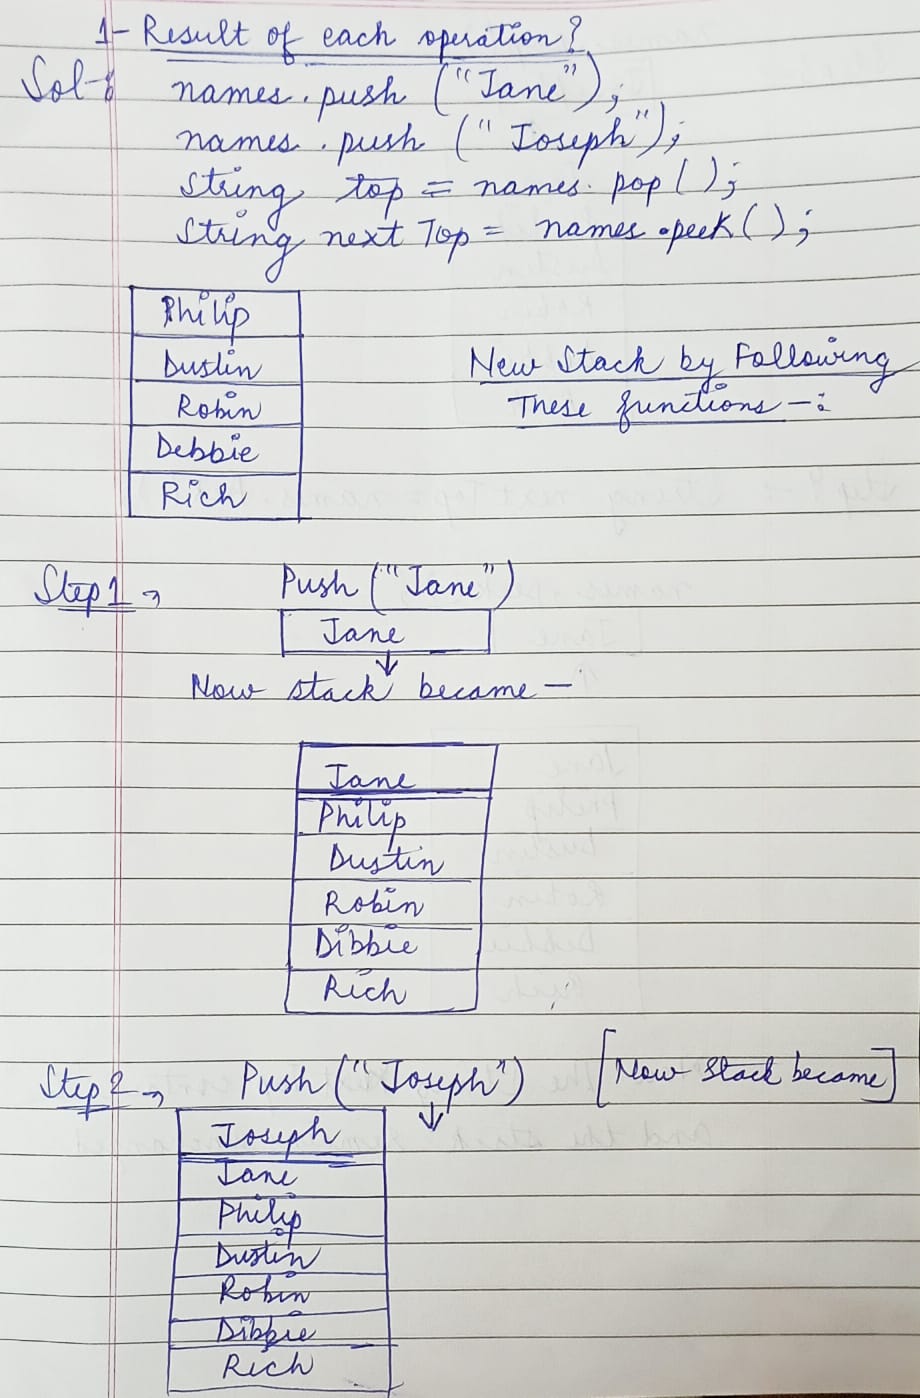 1- Result of each operation?
Sol-: names.push ("Jane");
names.push ("Joseph");
String top = names.pop();
String next Top = names.peek();
Philip
Dustin
Robin
Debbie
Rich
New Stack by Following
These functions -:
Step 1 → Push ("Jane")
Jane
↓
Now stack became -
Jane
Philip
Dustin
Robin
Dibbie
Rich
Step 2 → Push ("Joseph") [Now Stack became]
↓
Joseph
Jane
Philip
Dustin
Robin
Dibbie
Rich